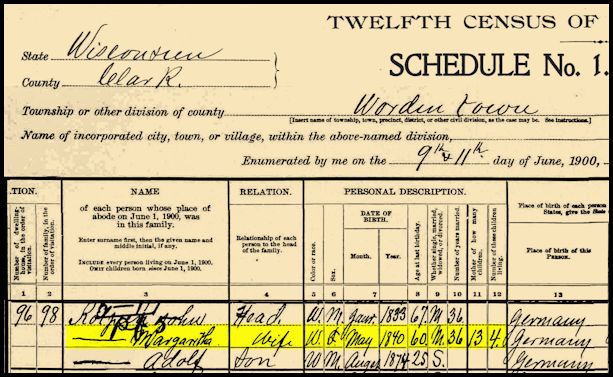 TWELFTH CENSUS OF
State Wisconsin
County Clark
SCHEDULE No. 1.
Township or other division of county Worden Town
[Insert name of township, town, precinct, district, or other civil division, as the case may be. See instructions.]
Name of incorporated city, town, or village, within the above-named division,
Enumerated by me on the 9th & 11th day of June, 1900,
TION. NAME RELATION. PERSONAL DESCRIPTION.
Number of dwelling-house, in the order of visitation.
Number of family, in the order of visitation.
of each person whose place of abode on June 1, 1900, was in this family.
Enter surname first, then the given name and middle initial, if any.
INCLUDE every person living on June 1, 1900.
OMIT children born since June 1, 1900.
Relationship of each person to the head of the family.
Color or race.
Sex.
DATE OF BIRTH.
Month. Year.
Age at last birthday.
Whether single, married, widowed, or divorced.
Number of years married.
Mother of how many children.
Number of these children living.
Place of birth of each person
States, give the State
Place of birth of this PERSON.
1 2 3 4 5 6 7 8 9 10 11 12 13
96 98 John Head W M 1833 67 M 36 Germany
Margaritha Wife W F May 1840 60 M 36 13 4 Germany
Adolf Son W M Aug 1874 25 S Germany